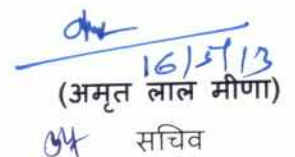 16/5/13
(अमृत लाल मीणा)
सचिव